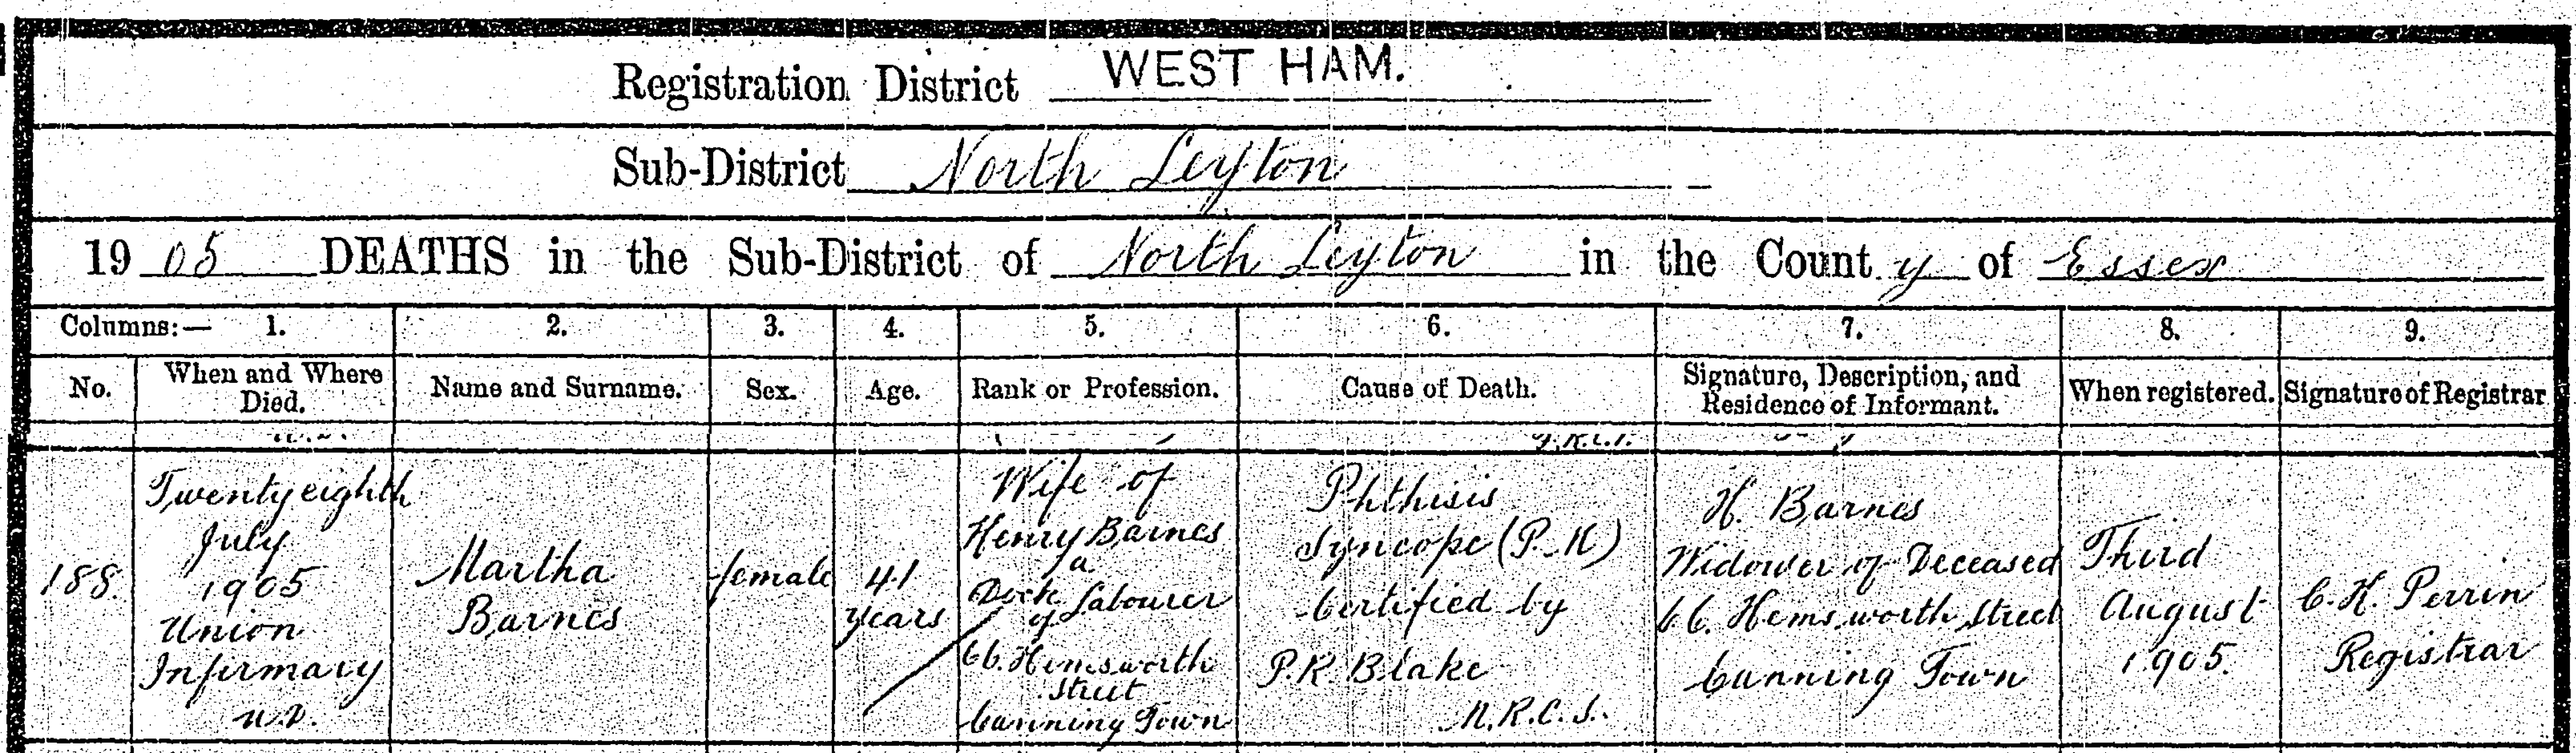 Registration District WEST HAM.
Sub-District North Leyton
1905 DEATHS in the Sub-District of North Leyton in the County of Essex
Columns:— 1. 2. 3. 4. 5. 6. 7. 8. 9.
No. When and Where Died. Name and Surname. Sex. Age. Rank or Profession. Cause of Death. Signature, Description, and Residence of Informant. When registered. Signature of Registrar
188.
Twenty eighth
July
1905
Union
Infirmary
Martha
Barnes
female
41
years
Wife of
Henry Barnes
a
Dock Labourer
of
66. Hemsworth
Street
Canning Town
Phthisis
Syncope (P.M)
Certified by
P.R. Blake
M.R.C.S.
H. Barnes
Widower of Deceased
66. Hemsworth Street
Canning Town
Third
August
1905.
C.H. Perrin
Registrar